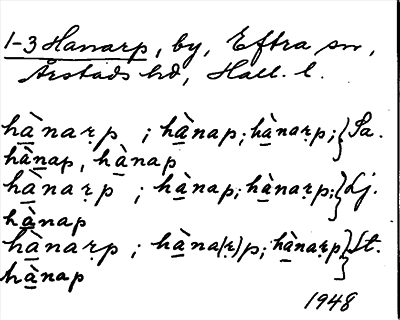 1-3 Hanarp, by, Eftra sn,
Årstads hd, Hall. l.
hà̱naṛp ; hà̱nap; hà̱naṛp; } Sa.
hà̱nap, hà̱nap
hà̱naṛp ; hà̱nap; hà̱naṛp; } Lj.
hà̱nap
hà̱naṛp ; hà̱na(ṛ)p; hà̱naṛp } St.
hà̱nap
1948